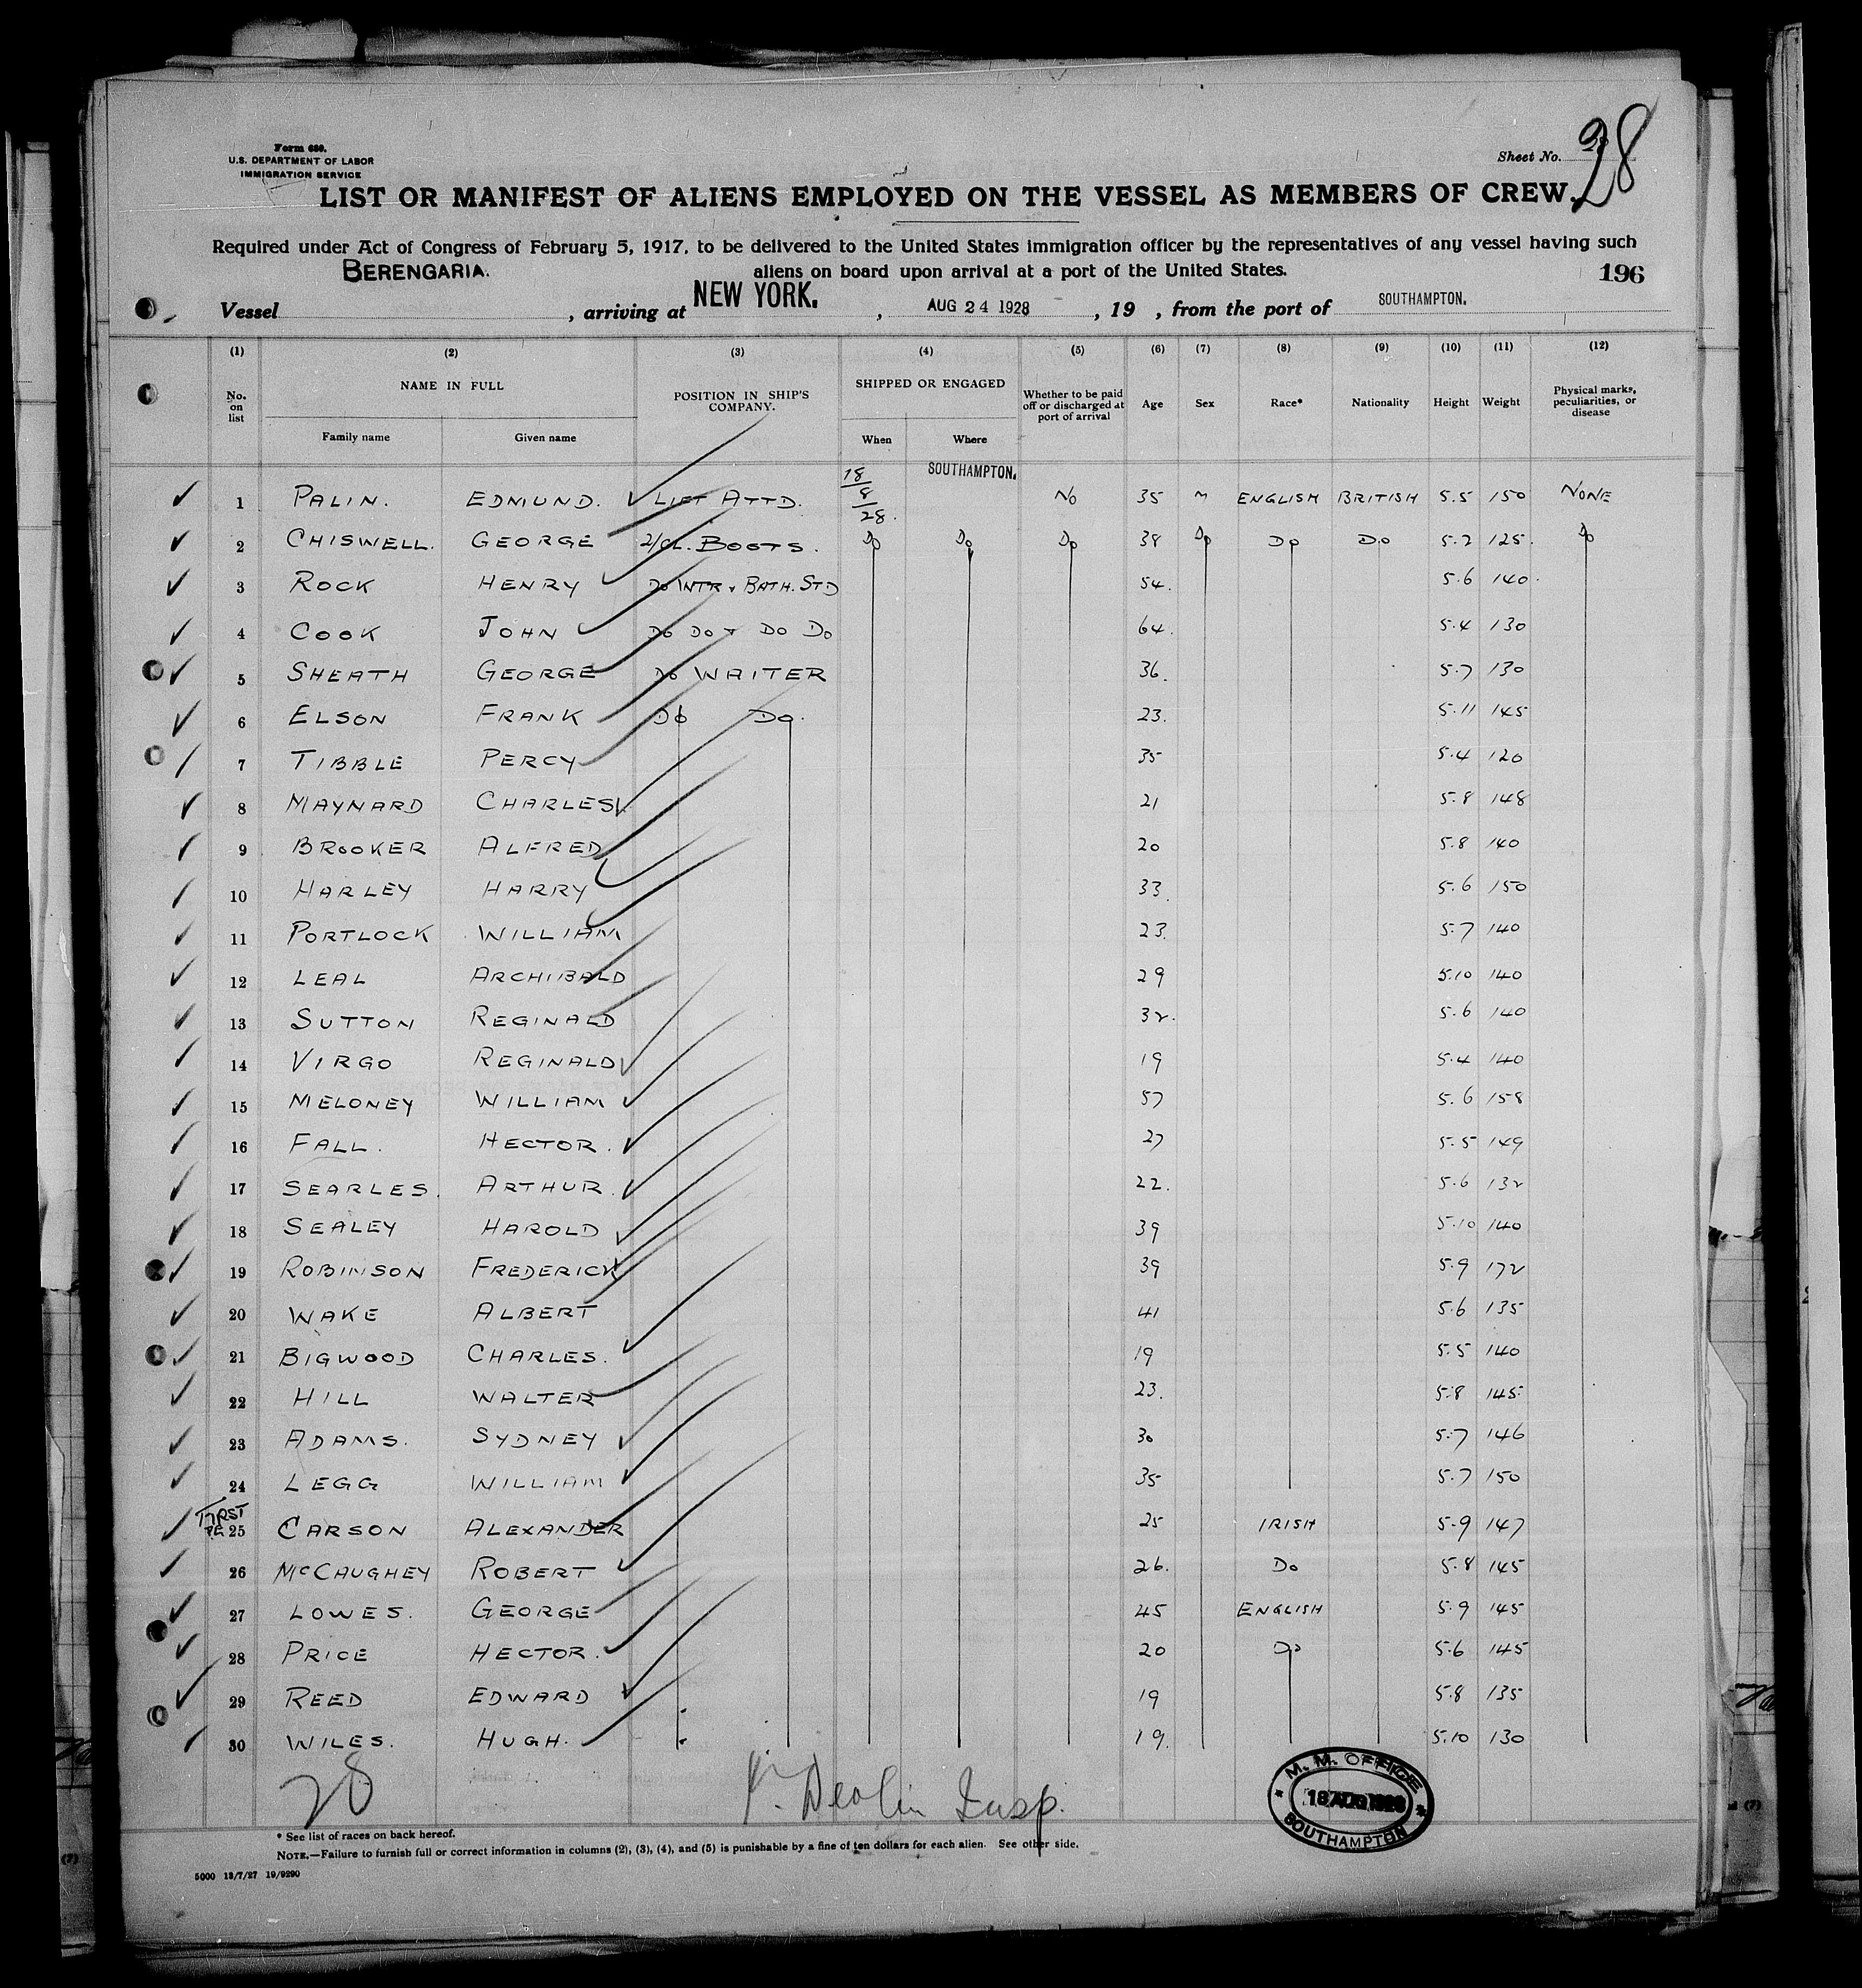 Form 680.
U.S. DEPARTMENT OF LABOR
IMMIGRATION SERVICE
Sheet No. 28
LIST OR MANIFEST OF ALIENS EMPLOYED ON THE VESSEL AS MEMBERS OF CREW.
Required under Act of Congress of February 5, 1917, to be delivered to the United States immigration officer by the representatives of any vessel having such
aliens on board upon arrival at a port of the United States.
196
Vessel BERENGARIA. , arriving at NEW YORK. , AUG 24 1928 , 19 , from the port of SOUTHAMPTON.
(1) (2) (3) (4) (5) (6) (7) (8) (9) (10) (11) (12)
No. on list NAME IN FULL Family name Given name POSITION IN SHIP'S COMPANY. SHIPPED OR ENGAGED When Where Whether to be paid off or discharged at port of arrival Age Sex Race* Nationality Height Weight Physical marks, peculiarities, or disease
1 PALIN. EDMUND. LIFT ATTD. 18/8/28. SOUTHAMPTON. NO 35 M ENGLISH BRITISH 5.5 150 NONE
2 CHISWELL. GEORGE 2/CL. BOOTS. Do Do Do 38 Do Do Do 5.2 125. Do
3 ROCK HENRY Do WTR & BATH. STD 54. 5.6 140.
4 COOK JOHN Do Do & Do Do 64. 5.4 130
5 SHEATH GEORGE Do WAITER 36. 5.7 130
6 ELSON FRANK Do Do. 23. 5.11 145
7 TIBBLE PERCY 35 5.4 120
8 MAYNARD CHARLES 21 5.8 148
9 BROOKER ALFRED 20 5.8 140
10 HARLEY HARRY 33. 5.6 150
11 PORTLOCK WILLIAM 23. 5.7 140
12 LEAL ARCHIBALD 29 5.10 140
13 SUTTON REGINALD 32. 5.6 140
14 VIRGO REGINALD 19 5.4 140
15 MELONEY WILLIAM 57 5.6 158
16 FALL. HECTOR. 27 5.5 149
17 SEARLES. ARTHUR. 22. 5.6 132
18 SEALEY HAROLD 39 5.10 140
19 ROBINSON FREDERICK 39 5.9 172
20 WAKE ALBERT 41 5.6 135
21 BIGWOOD CHARLES. 19 5.5 140
22 HILL WALTER 23. 5.8 145
23 ADAMS. SYDNEY 30 5.7 146
24 LEGG WILLIAM 35 5.7 150
FIRST
25 CARSON ALEXANDER 25 IRISH 5.9 147
26 McCAUGHEY ROBERT 26. Do 5.8 145
27 LOWES. GEORGE 45 ENGLISH 5.9 145
28 PRICE HECTOR. 20 Do 5.6 145
29 REED EDWARD 19 5.8 135
30 WILES. HUGH. 19. 5.10 130
28
Devlin Insp.
M. M. OFFICE
18 AUG 1928
SOUTHAMPTON
* See list of races on back hereof.
NOTE.—Failure to furnish full or correct information in columns (2), (3), (4), and (5) is punishable by a fine of ten dollars for each alien. See other side.
5000 13/7/27 19/9290